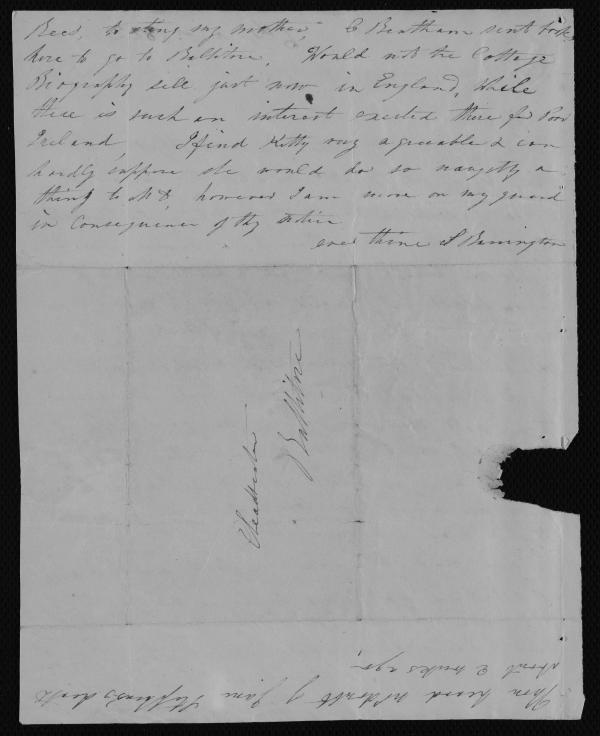 Bees, to sting my mother C Bentham sent book
here to go to Ballitore, Would not the Cottage
Biography sell just now in England, while
there is such an interest excited there for Poor
Ireland I find Kitty very agreeable & can
hardly suppose she would do so naughty a
thing to M D, however I am more on my guard
in consequence of thy notice
ever thine S Barrington
Ballitore
Thou heard no doubt of Jane Stephens's death
about 2 weeks ago,